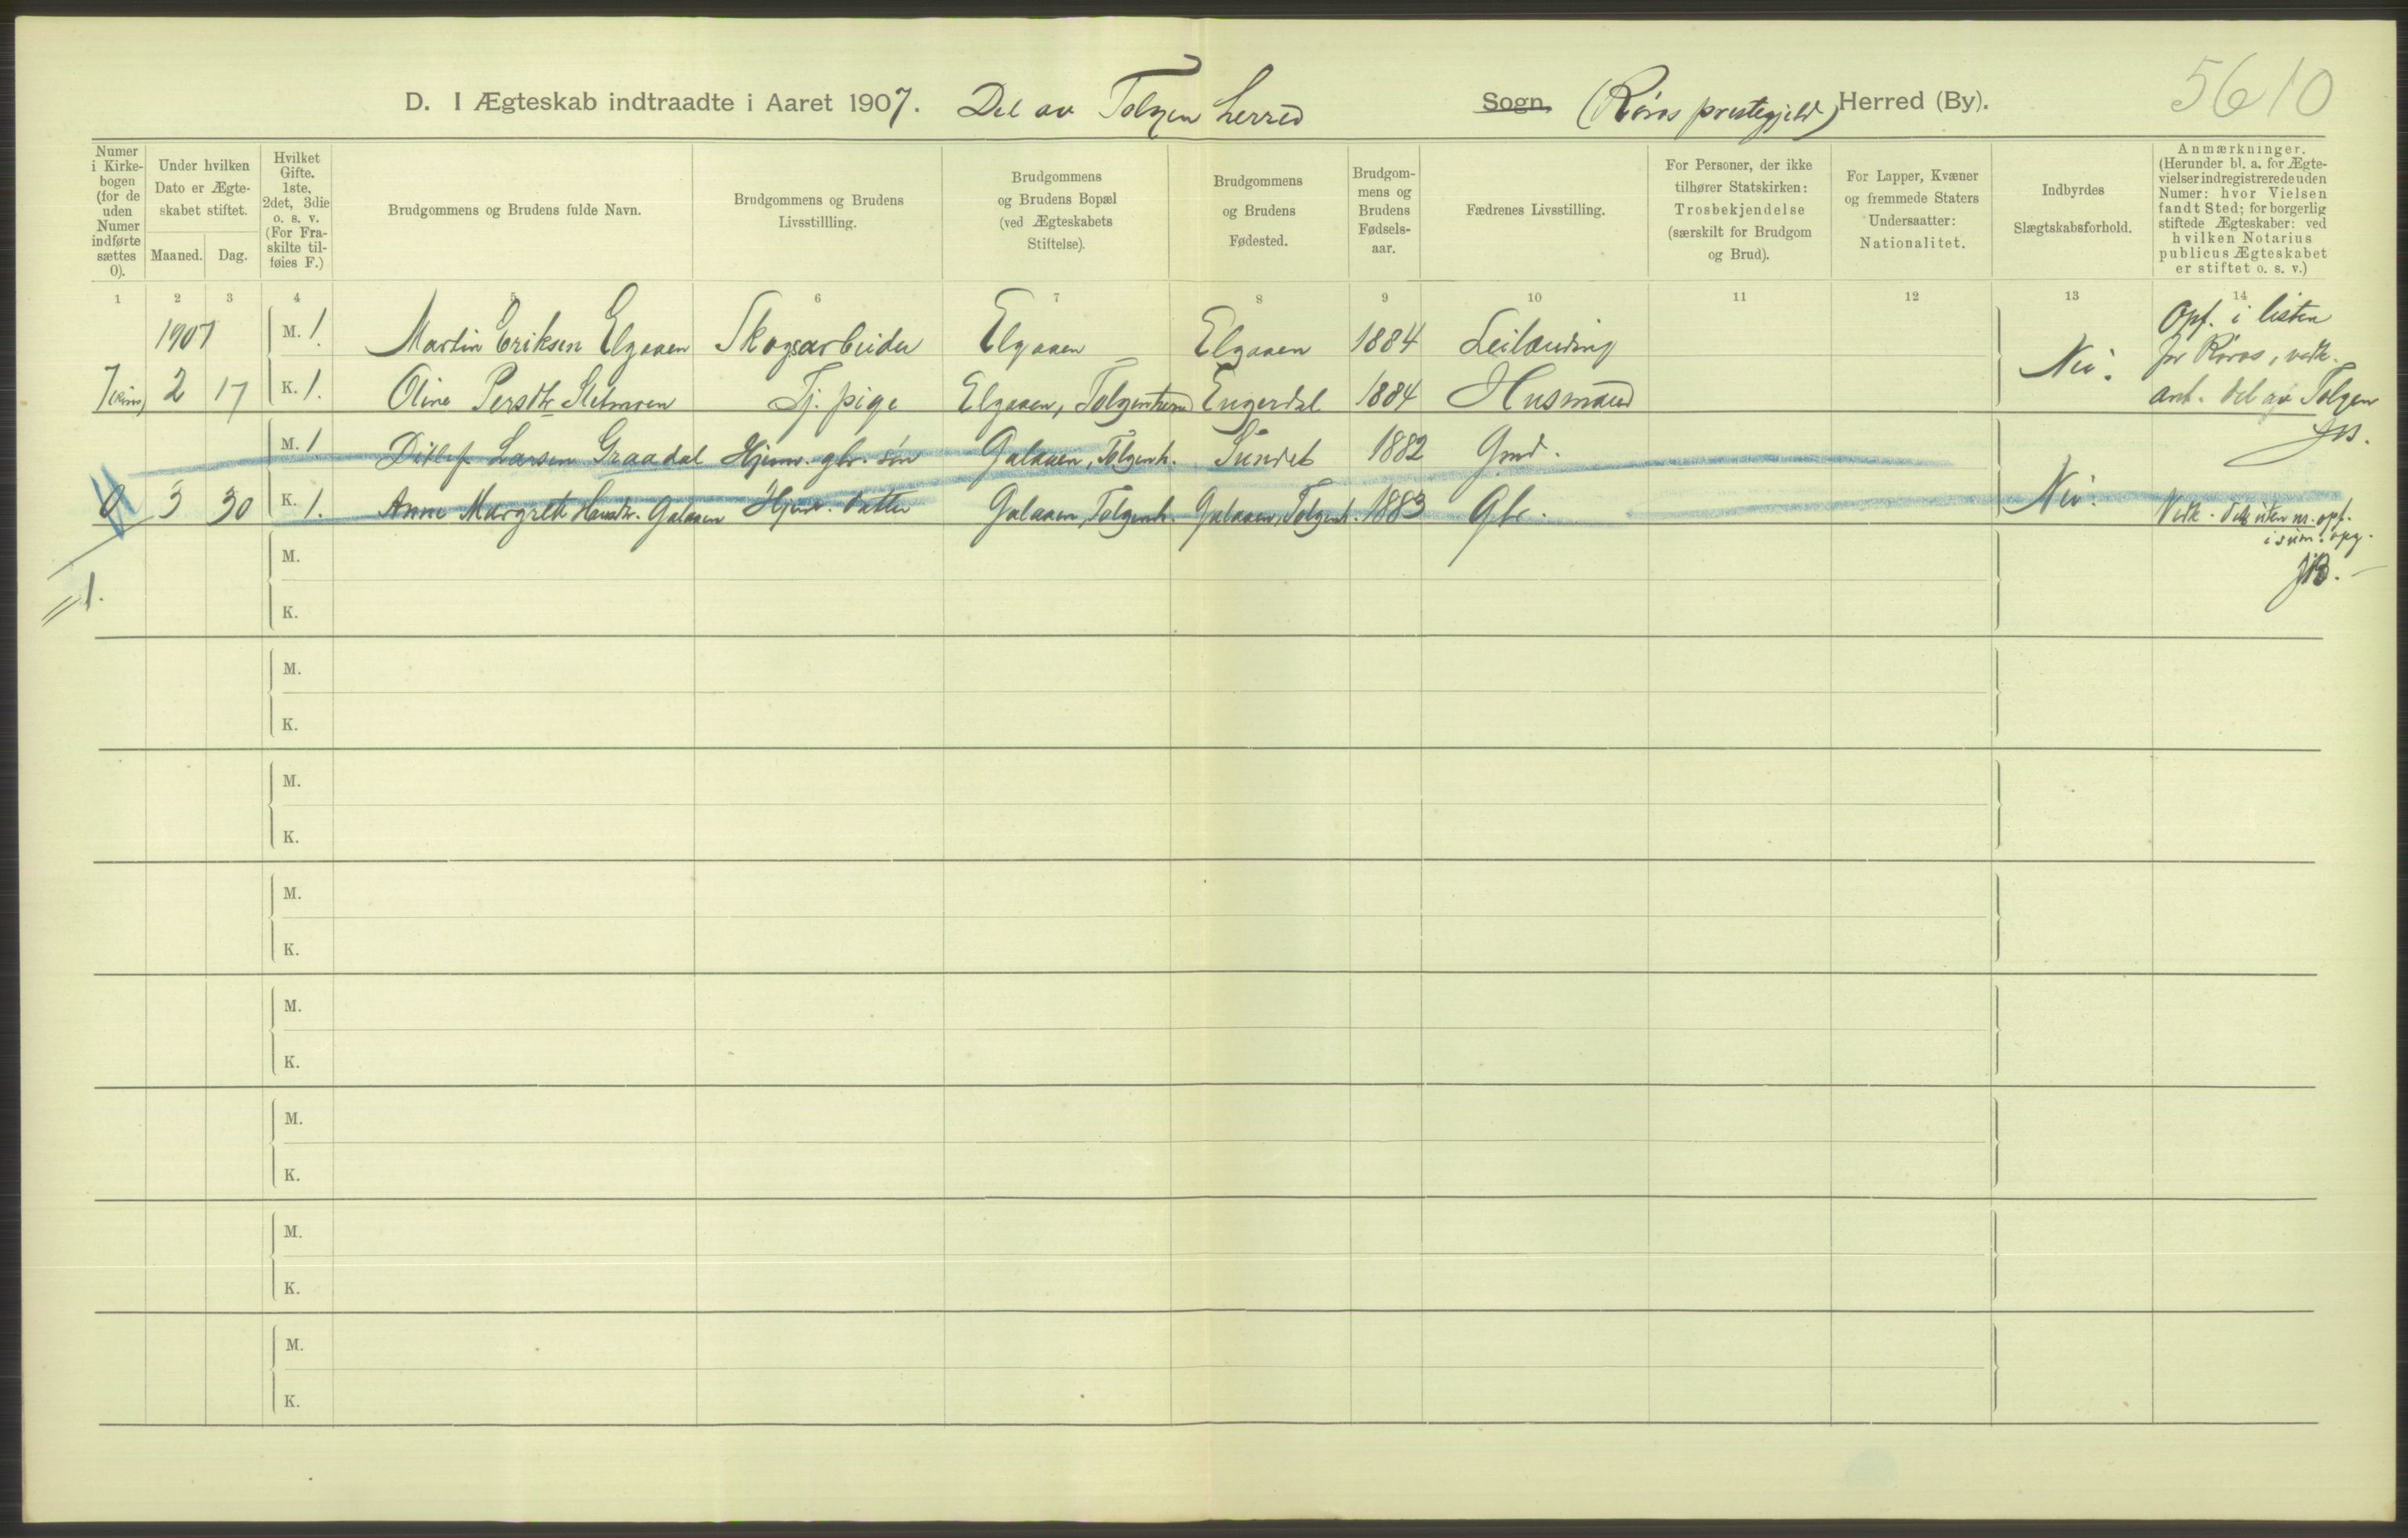 D. I Ægteskab indtraadte i Aaret 1907. Del av Tolgen herred Sogn (Røros prestegjeld) Herred (By). 5610
Numer i Kirkebogen (for de uden Numer indførte sættes 0).
Under hvilken Dato er Ægteskabet stiftet.
Maaned. Dag.
Hvilket Gifte. 1ste, 2det, 3die o. s. v. (For Fraskilte tilføies F.)
Brudgommens og Brudens fulde Navn.
Brudgommens og Brudens Livsstillling.
Brudgommens og Brudens Bopæl (ved Ægteskabets Stiftelse).
Brudgommens og Brudens Fødested.
Brudgommens og Brudens Fødselsaar.
Fædrenes Livsstilling.
For Personer, der ikke tilhører Statskirken: Trosbekjendelse (særskilt for Brudgom og Brud).
For Lapper, Kvæner og fremmede Staters Undersaatter: Nationalitet.
Indbyrdes Slægtskabsforhold.
Anmærkninger. (Herunder bl. a. for Ægtevielser indregistrerede uden Numer: hvor Vielsen fandt Sted; for borgerlig stiftede Ægteskaber: ved hvilken Notarius publicus Ægteskabet er stiftet o. s. v.)
1 2 3 4 5 6 7 8 9 10 11 12 13 14
1907 M. 1. Martin Eriksen Elgaaen Skogsarbeider Elgaaen Elgaaen 1884 Leilænding
7 2 17 K. 1. Oline Persdtr Sletmoen Tj. pige Elgaaen, Tolgenherred Engerdal 1884 Husmand Nei.
Opf. i listen
for Røros, vedk.
ant. del av Tolgen
JB.
M. 1. Ditlef Larsen Graadal Hjemv. gbr. søn Galaaen, Tolgenh. Sundet 1882 Gmd.
0 3 30 K. 1. Anne Margrete Hansdtr. Galaaen Hjemv. datter Galaaen, Tolgenh. Galaaen, Tolgenh. 1883 Gbr. Nei.
Vedk. dele uten nr. opf.
i sum. opg.
JB.
1.
M.
K.
M.
K.
M.
K.
M.
K.
M.
K.
M.
K.
M.
K.
M.
K.